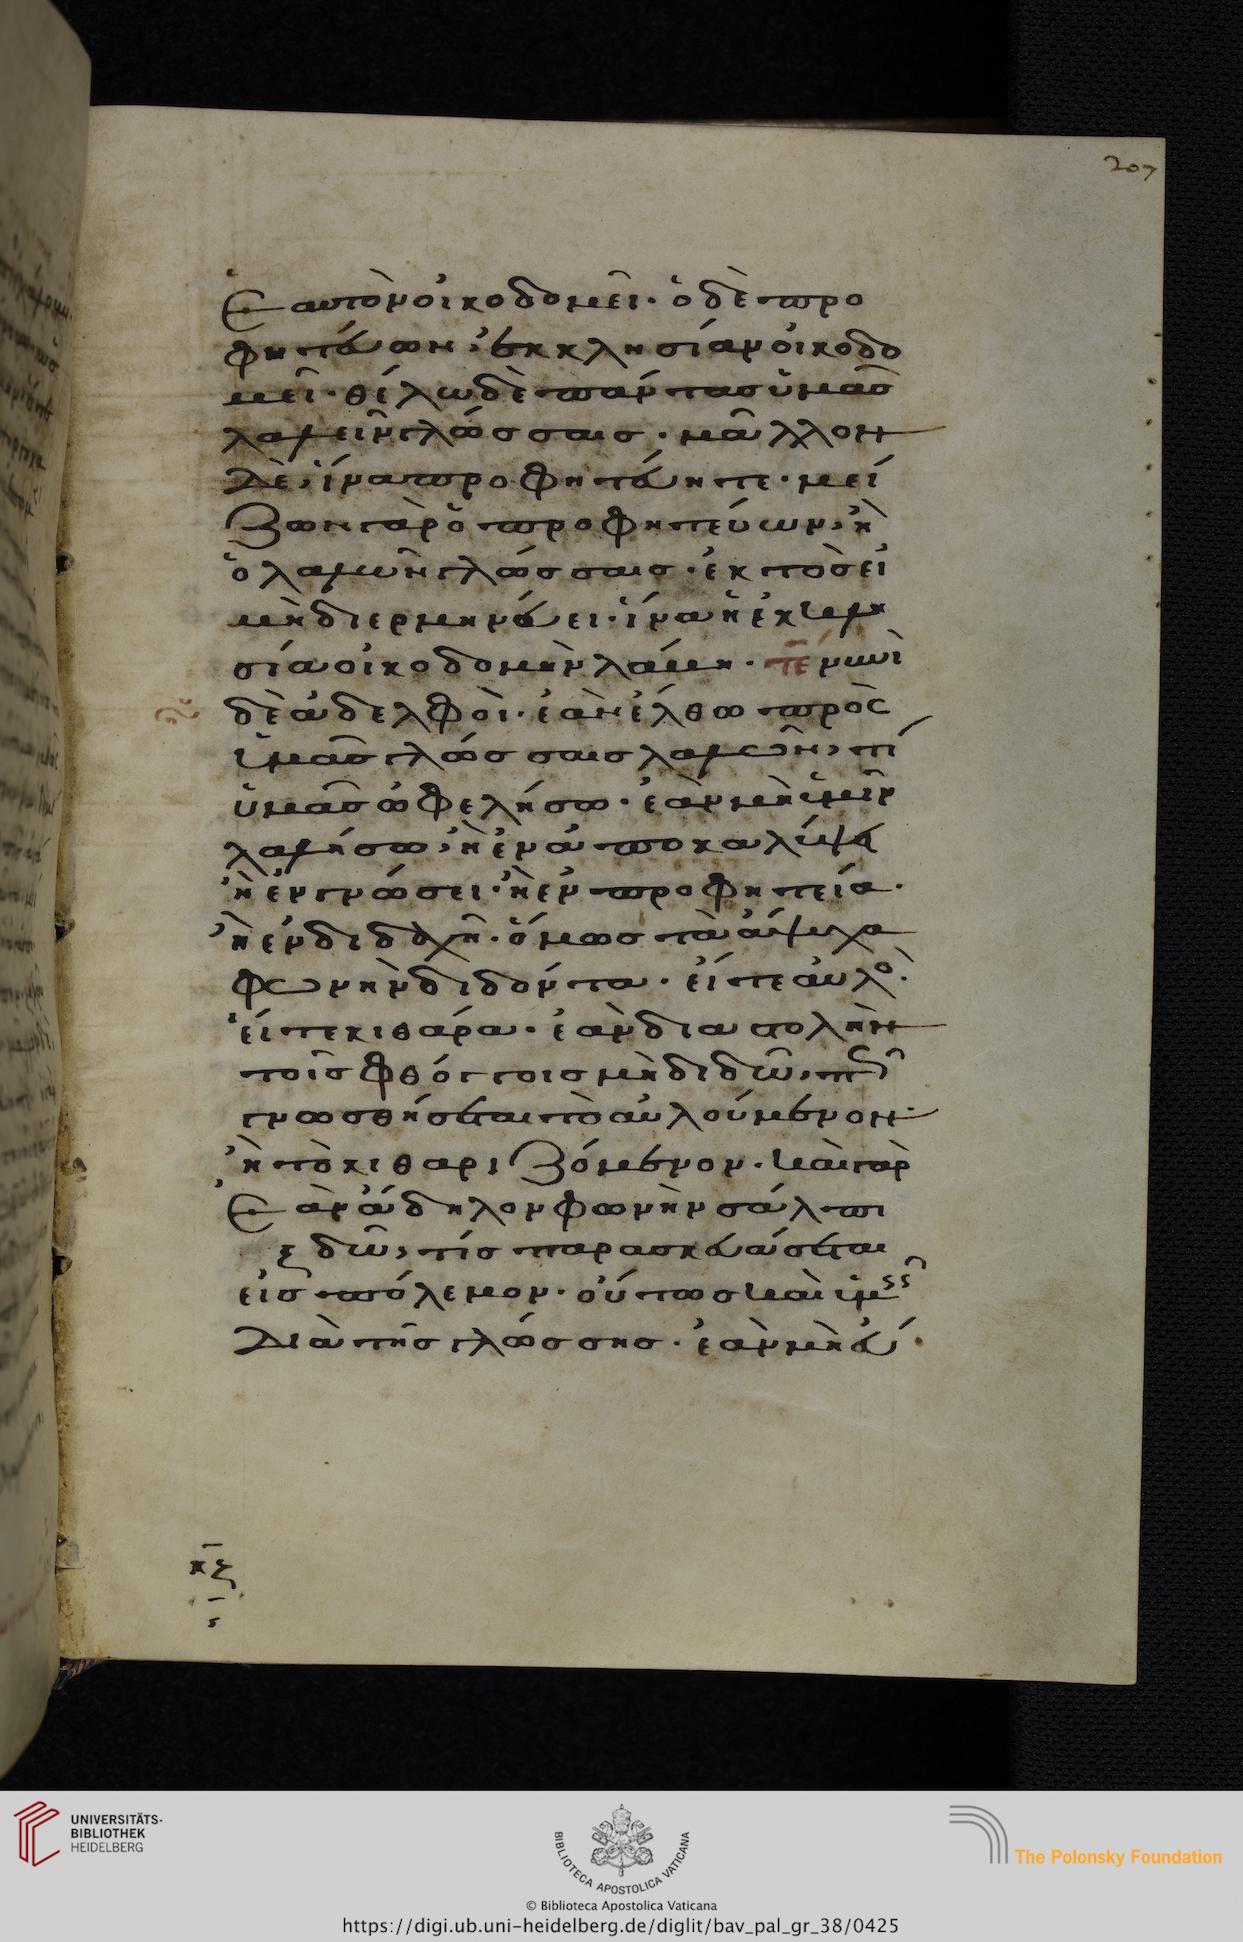 207
ἑαυτὸν οἰκοδομεῖ· ὁ δὲ προ
φητεύων, ἐκκλησίαν οἰκοδο
μεῖ· θέλω δὲ πάντας ὑμᾶς
λαλεῖν γλώσσαις· μᾶλλον
δὲ, ἵνα προφητεύητε· μεί
ζων γὰρ ὁ προφητεύων, ἢ
ὁ λαλῶν γλώσσαις· ἐκτὸς εἰ
μὴ διερμηνεύει· ἵνα ἡ ἐκκλη
σία οἰκοδομὴν λάβη· νυνὶ
δὲ ἀδελφοὶ· ἐὰν ἔλθω πρὸς
ὑμᾶς γλώσσαις λαλῶν, τί
ὑμᾶς ὠφελήσω· ἐὰν μὴ ὑμῖν
λαλήσω, ἢ ἐν ἀποκαλύψει
ἢ ἐν γνώσει· ἢ ἐν προφητεία·
ἢ ἐν διδαχῆ· ὅμως τὰ ἄψυχα
φωνὴν διδόντα· εἴτε αὐλὸ·
εἴτε κιθάρα· ἐὰν διαστολὴν
τοῖς φθόγγοις μὴ διδῶ, πῶς
γνωσθήσεται τὸ αὐλούμενον·
ἢ τὸ κιθαριζόμενον· καὶ γὰρ
ἐὰν ἄδηλον φωνὴν σάλπι
ξ δῶ, τίς παρασκευάσεται
εἰς πόλεμον· οὕτως καὶ ὑμεῖς
διὰ τῆς γλώσσης· ἐὰν μὴ εὔ·
κξ
UNIVERSITÄTS-
BIBLIOTHEK
HEIDELBERG
BIBLIOTECA APOSTOLICA VATICANA
The Polonsky Foundation
© Biblioteca Apostolica Vaticana
https://digi.ub.uni-heidelberg.de/diglit/bav_pal_gr_38/0425